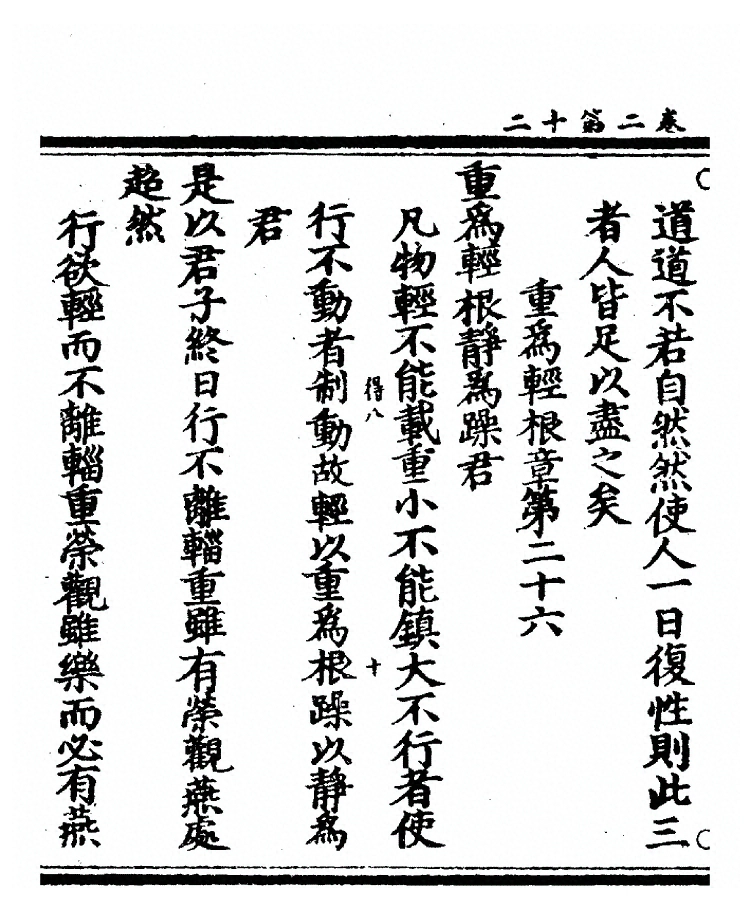 卷二第十二
道道不若自然然使人一日復性則此三
者人皆足以盡之矣
重爲輕根章第二十六
重爲輕根靜爲躁君
凡物輕不能載重小不能鎮大不行者使
得八
十
行不動者制動故輕以重爲根躁以靜爲
君
是以君子終日行不離輜重雖有榮觀燕處
超然
行欲輕而不離輜重榮觀雖樂而必有燕